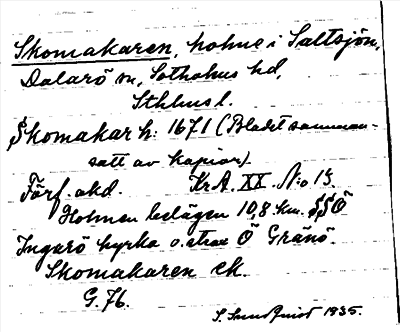 Skomakaren, holme i Saltsjön,
Dalarö sn, Sotholms hd,
Sthlms l.
Skomakar h: 1671 (Bladet samman-
satt av kopior).
Förf. okd. KrA. XX. N:o 13.
Holmen belägen 10,8 km. SSÖ
Ingarö kyrka o. strax Ö Gränö.
Skomakaren ek.
G. 76.
S. Sundquist 1935.